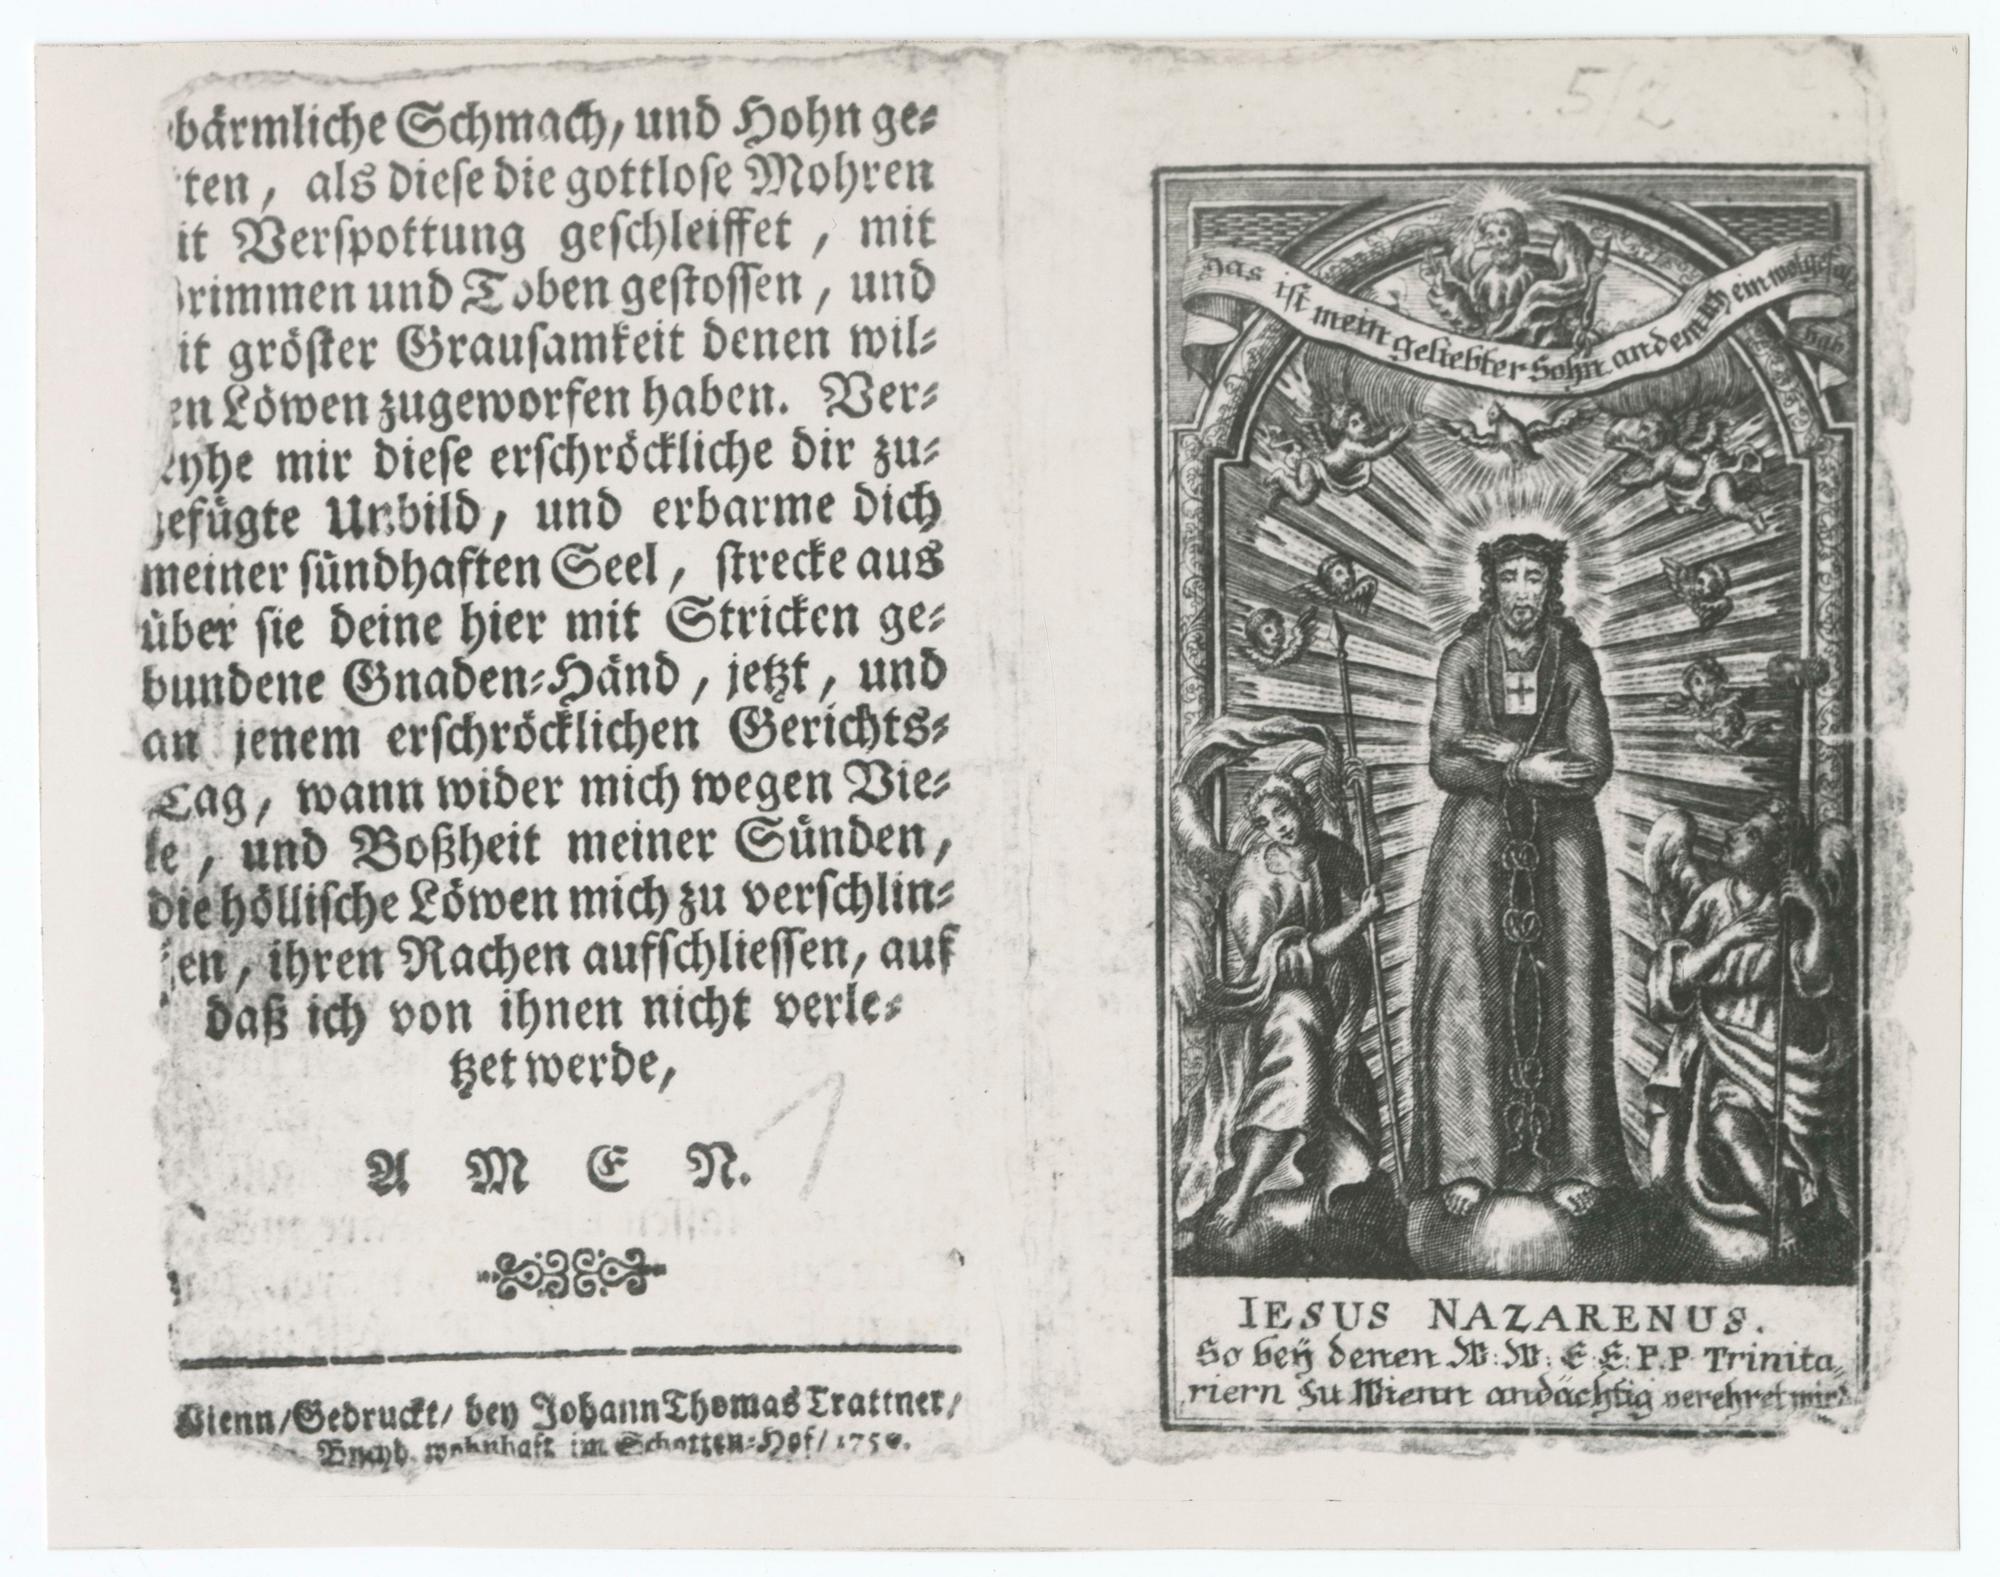 bärmliche Schmach, und Hohn ge⸗
ten, als diese die gottlose Mohren
it Verspottung geschleiffet, mit
rimmen und Toben gestossen, und
it gröster Grausamkeit denen wil⸗
en Löwen zugeworfen haben. Ver⸗
eyhe mir diese erschröckliche dir zu⸗
gefügte Unbild, und erbarme dich
meiner sündhaften Seel, strecke aus
über sie deine hier mit Stricken ge⸗
bundene Gnaden⸗Händ, jetzt, und
an jenem erschröcklichen Gerichts⸗
Tag, wann wider mich wegen Vie⸗
le, und Boßheit meiner Sünden,
die höllische Löwen mich zu verschlin⸗
gen, ihren Rachen aufschliessen, auf
daß ich von ihnen nicht verle⸗
tzet werde,
A M E N.
1
Wienn/Gedruckt/ bey Johann Thomas Trattner/
Buchd. wohnhaft im Schotten⸗Hof/
5/2
Das ist mein geliebter Sohn an dem ich ein wolgefal
hab
IESUS NAZARENUS.
So beÿ denen W: W: E: E: P.P Trinita⸗
riern zu Wienn andächtig verehret wird